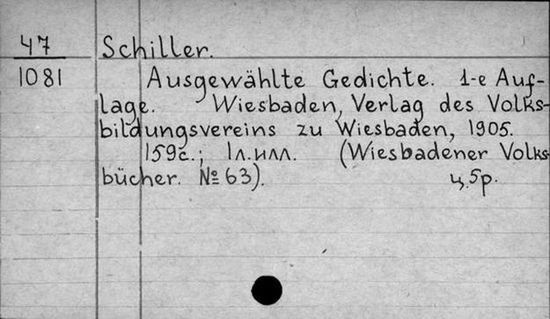 47 Schiller.
1081 Ausgewählte Gedichte. 1-е Auf-
lage. Wiesbaden, Verlag des Volks-
bildungsvereins zu Wiesbaden, 1905.
159с.; 1л.илл. (Wiesbadener Volks-
bücher. № 63). ц.5р.